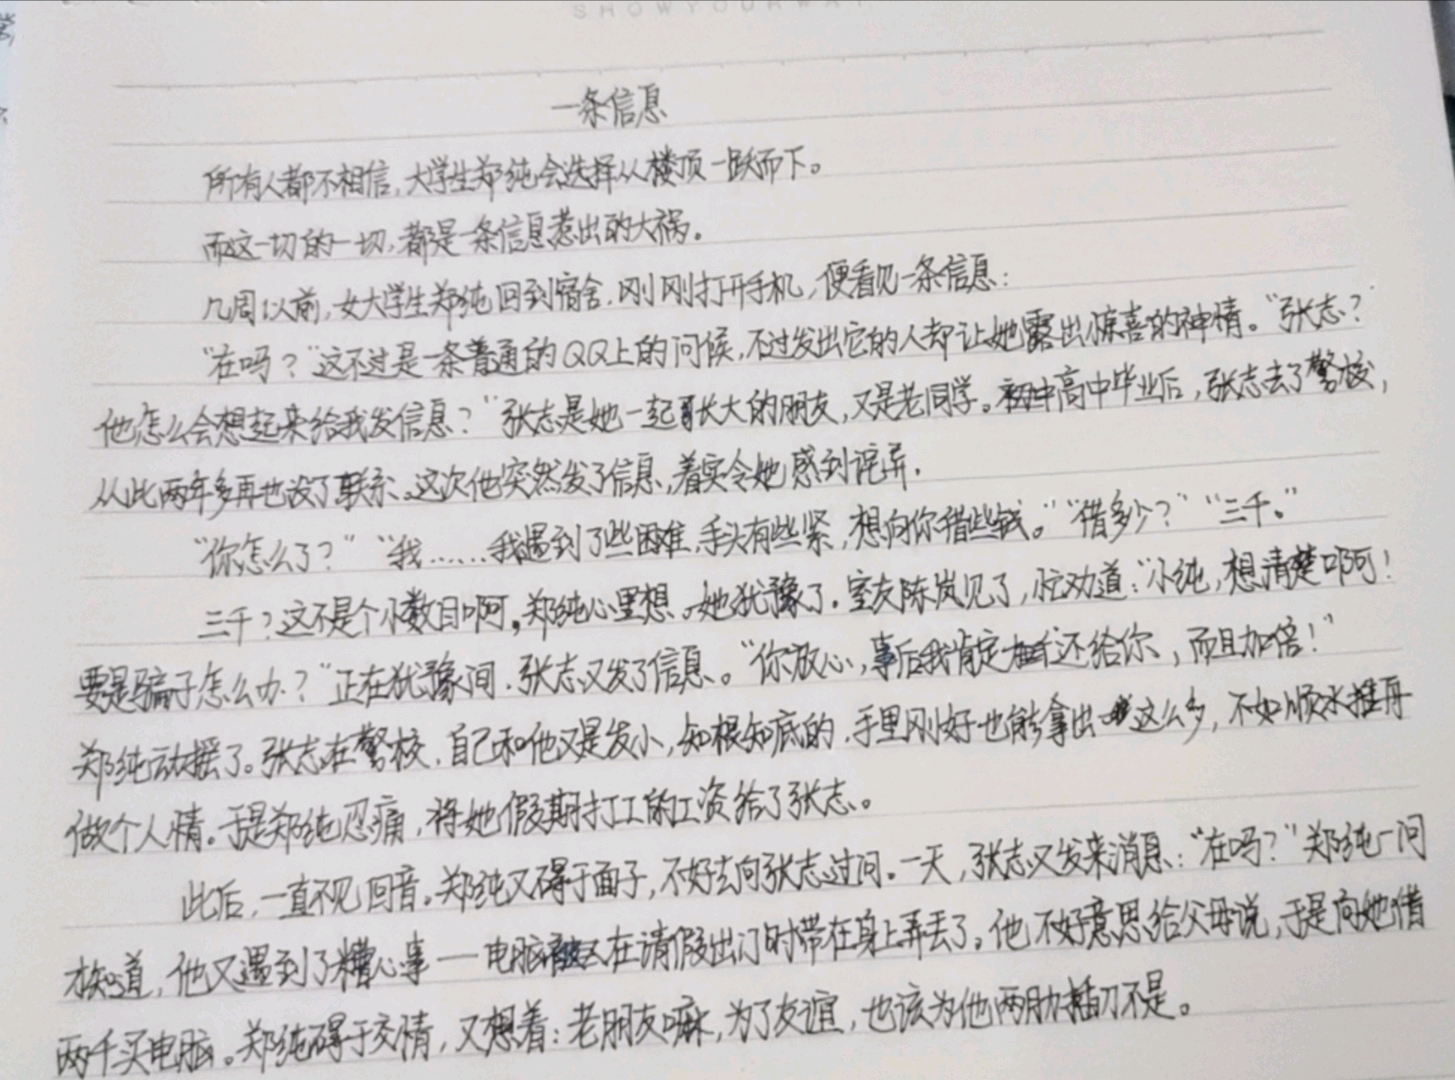 SHOWYOURWAY
一条信息
所有人都不相信,大学生郑纯会选择从楼顶一跃而下。
而这一切的一切,都是一条信息惹出的大祸。
几周以前,女大学生郑纯回到宿舍,刚刚打开手机,便看见一条信息:
“在吗?”这不过是一条普通的QQ上的问候,不过发出它的人却让她露出惊喜的神情。“张志?
他怎么会想起来给我发信息?”张志是她一起长大的朋友,又是老同学。初中高中毕业后,张志去了警校,
从此两年多再也没了联系。这次他突然发了信息,着实令她感到诧异.
“你怎么了?”“我……我遇到了些困难,手头有些紧,想向你借些钱。”“借多少?”“三千。”
三千?这不是个小数目啊,郑纯心里想。她犹豫了。室友陈岚见了,忙劝道:“小纯,想清楚啊!
要是骗子怎么办?”正在犹豫间,张志又发了信息。“你放心,事后我肯定还给你,而且加倍!”
郑纯动摇了。张志在警校,自己和他又是发小,知根知底的,手里刚好也能拿出这么多,不如顺水推舟
做个人情。于是郑纯忍痛,将她假期打工的工资给了张志。
此后,一直不见回音。郑纯又碍于面子,不好去向张志过问。一天,张志又发来消息:“在吗?”郑纯一问
才知道,他又遇到了糟心事——电脑在请假出门时带在身上弄丢了。他不好意思给父母说,于是向她借
两千买电脑。郑纯碍于交情,又想着:老朋友嘛,为了友谊,也该为他两肋插刀不是。